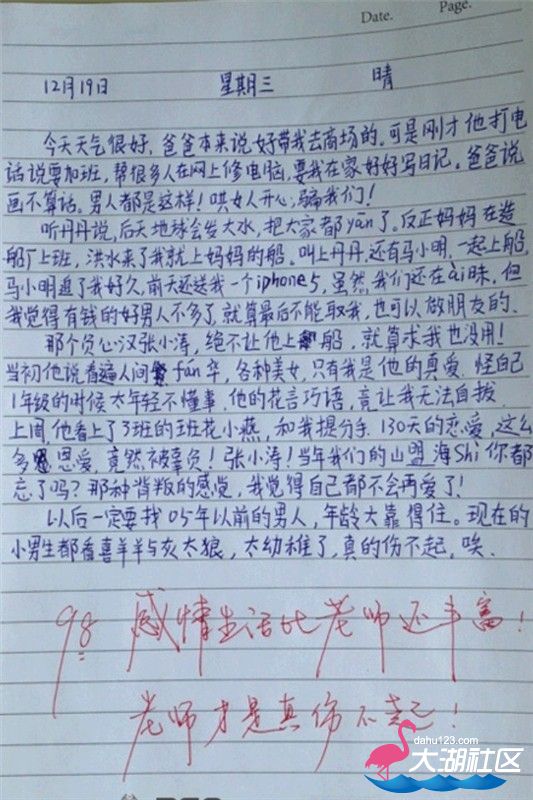 Date.
Page.
12月19日 星期三 晴
今天天气很好，爸爸本来说好带我去商场的。可是刚才他打电
话说要加班，帮很多人在网上修电脑，要我在家好好写日记。爸爸说
画不算话。男人都是这样！哄女人开心，骗我们！
听丹丹说，后天地球会发大水，把大家都yān了。反正妈妈在造
船厂上班，洪水来了我就上妈妈的船。叫上丹丹，还有马小明，一起上船，
马小明追了我好久，前天还送我一个iphone5，虽然我们还在ài昧，但
我觉得有钱的好男人不多了，就算最后不能取我，也可以做朋友的、
那个负心汉张小涛，绝不让他上船，就算求我也没用！
当初他说看遍人间fán华，各种美女，只有我是他的真爱，怪自己
1年级的时候太年轻不懂事，他的花言巧语，竟让我无法自拔
上周，他看上了3班的班花小燕，和我提分手，130天的恋爱，这么
多恩爱，竟然被辜负！张小涛！当年我们的山盟海Shì你都
忘了吗？那种背叛的感觉，我觉得自己都不会再爱了！
以后一定要找05年以前的男人，年龄大靠得住。现在的
小男生都看喜羊羊与灰太狼，太幼稚了，真的伤不起，唉、
98 感情生活比老师还丰富！
老师才是真伤不起！
dahu123.com
大湖社区